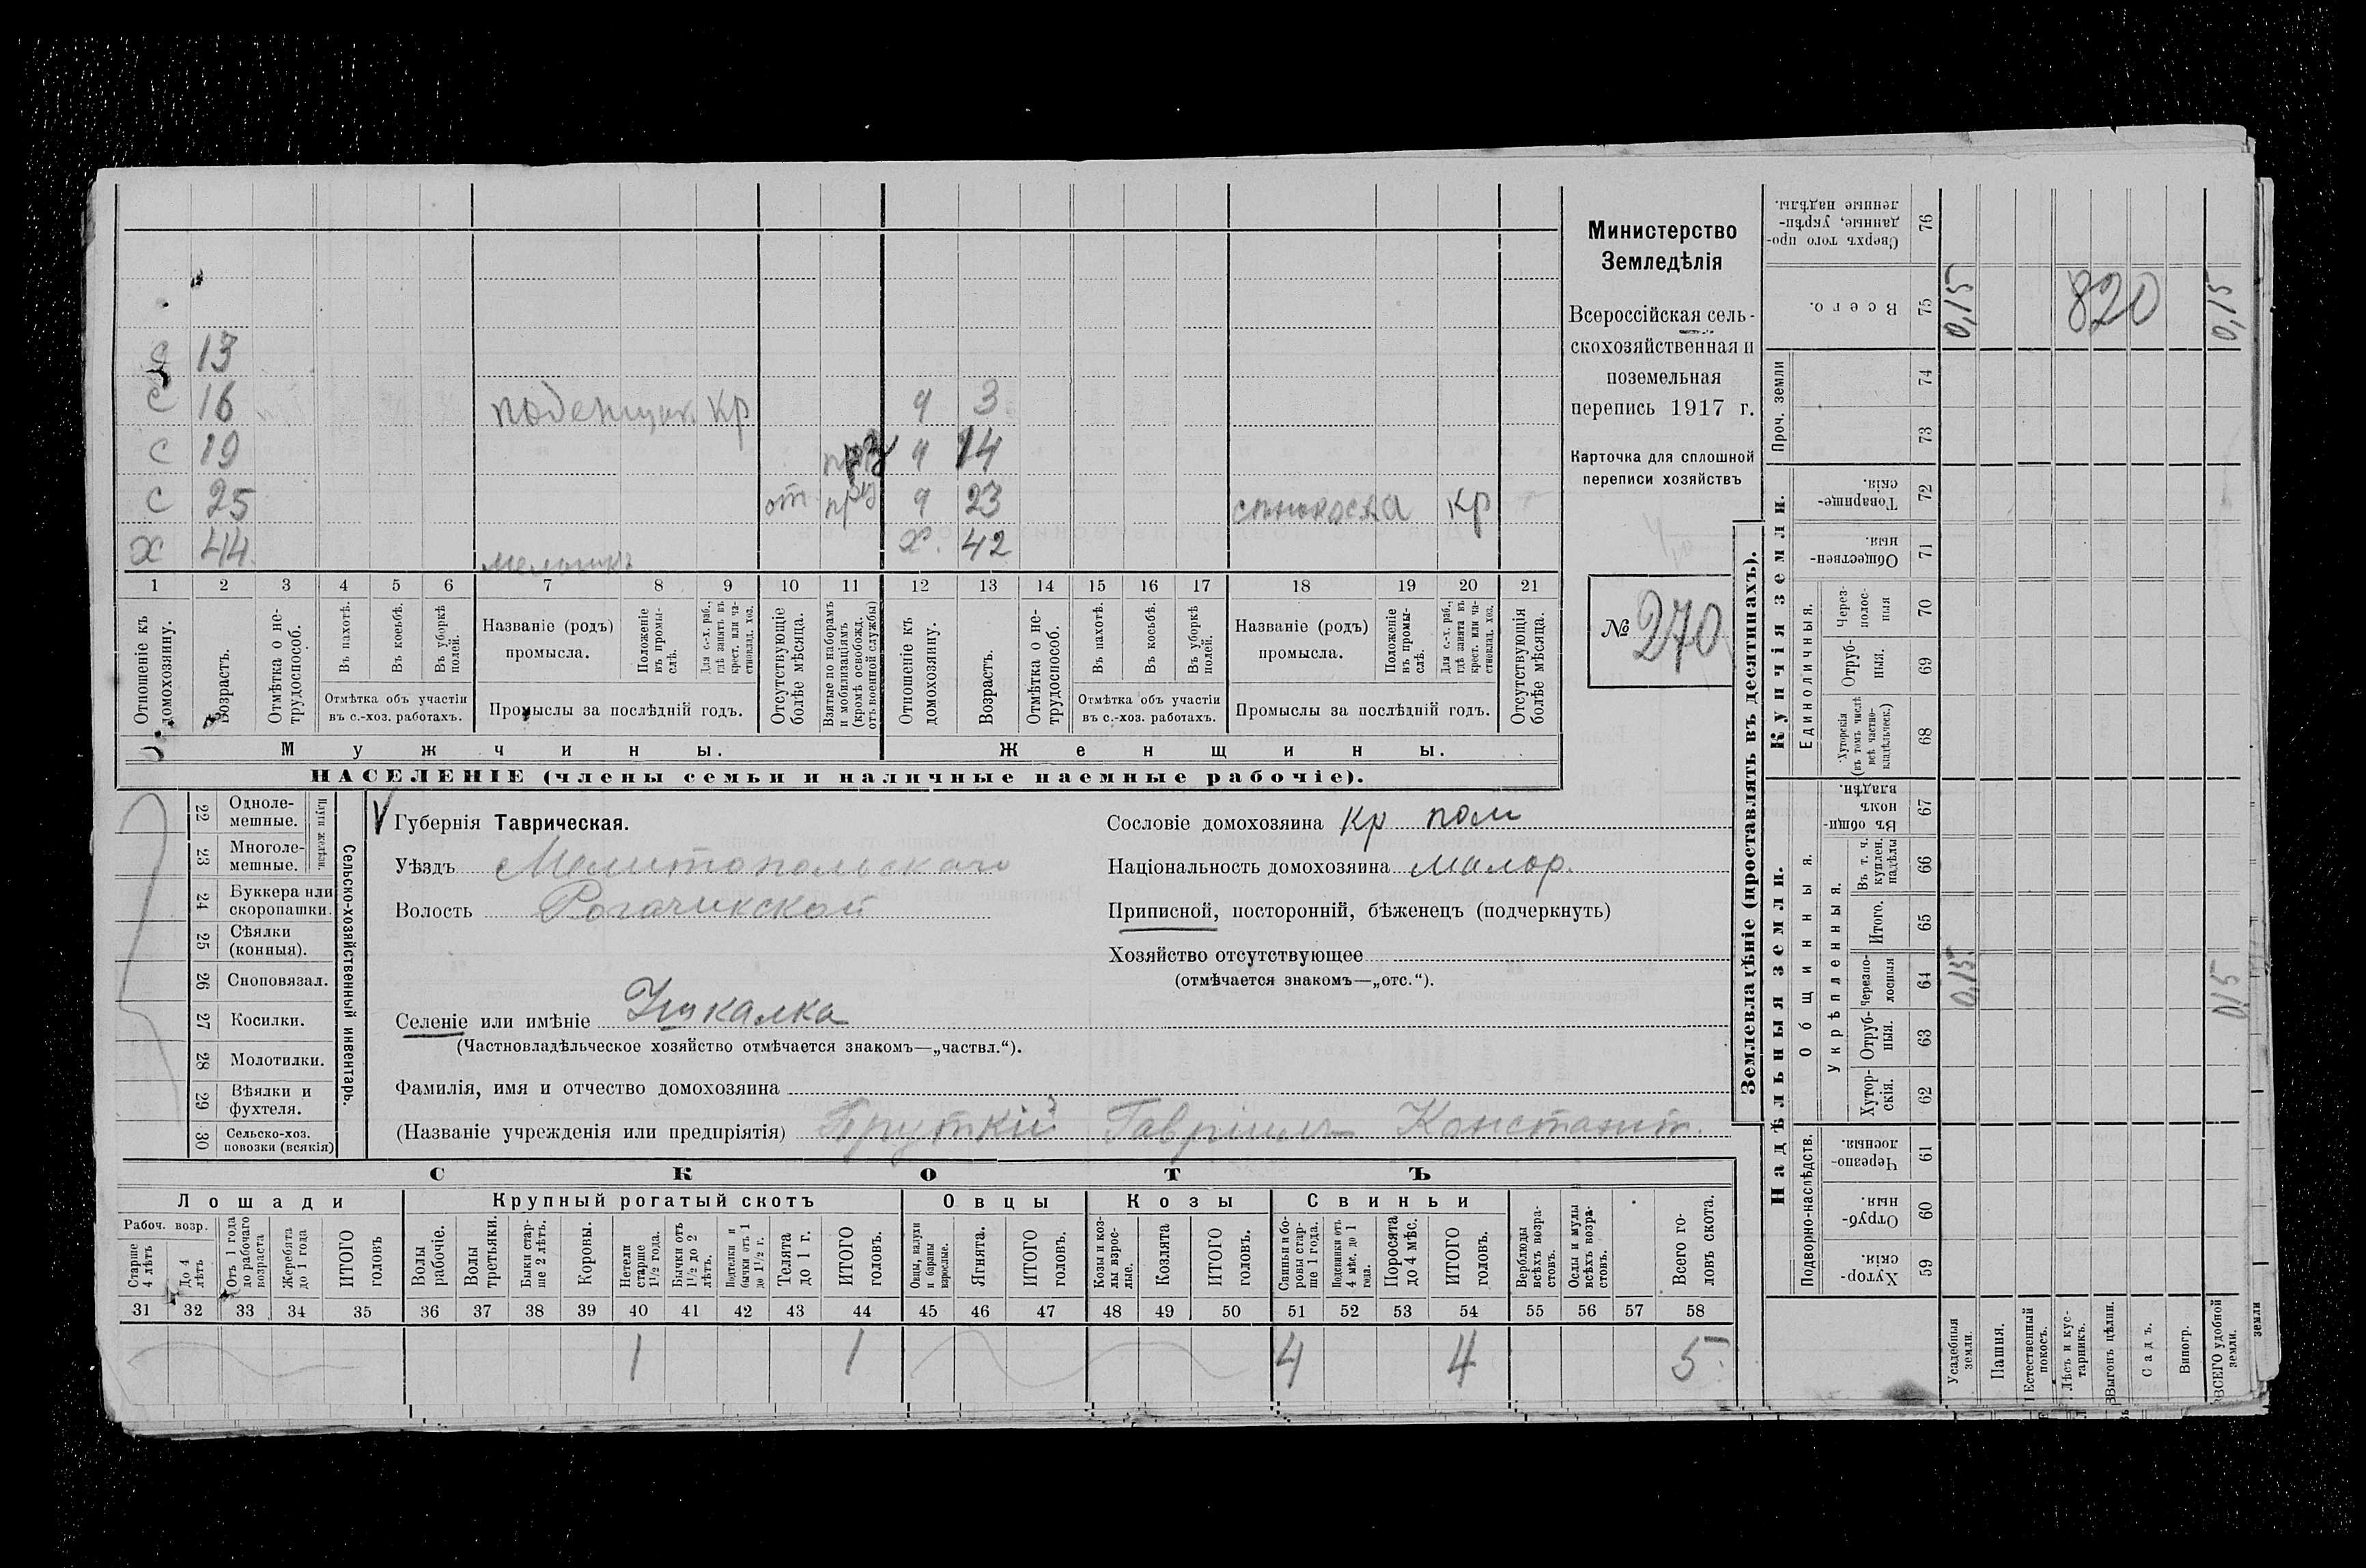 С 13
С 16 поденщик. кр ч 3
С 19 ч 14
С 25 от ч 23 кр
Х 44 х. 42
1 2 3 4 5 6 7 8 9 10 11 12 13 14 15 16 17 18 19 20 21
Отношеніе къ домохозяину.
Возрастъ.
Отмѣтка о не-
трудоспособ.
Въ пахотѣ.
Въ косьбѣ.
Въ уборкѣ
полей.
Отмѣтка объ участіи
въ с.-хоз. работахъ.
Названіе (родъ)
промысла.
Положеніе
въ промы-
слѣ.
Для с.-х. раб.,
гдѣ занятъ въ
крест. или ча-
стновлад. хоз.
Промыслы за послѣдній годъ.
Отсутствующіе
болѣе мѣсяца.
Взятые по наборамъ
и мобилизаціямъ
(кромѣ освобожд.
отъ военной службы)
Отношеніе къ
домохозяину.
Возрастъ.
Отмѣтка о не-
трудоспособ.
Въ пахотѣ.
Въ косьбѣ.
Въ уборкѣ
полей.
Отмѣтка объ участіи
въ с.-хоз. работахъ.
Названіе (родъ)
промысла.
Положеніе
въ промы-
слѣ.
Для с.-х. раб.,
гдѣ занята въ
крест. или ча-
стновлад. хоз.
Промыслы за послѣдній годъ.
Отсутствующія
болѣе мѣсяца.
Мужчины. Женщины.
НАСЕЛЕНІЕ (члены семьи и наличные наемные рабочіе).
Министерство
Земледѣлія
Всероссійская сель-
скохозяйственная и
поземельная
перепись 1917 г.
Карточка для сплошной
переписи хозяйствъ
№ 270
22 Одноле-
мешные.
23 Многоле-
мешные.
Плуги желѣзн.
24 Буккера или
скоропашки.
25 Сѣялки
(конныя).
26 Сноповязал.
27 Косилки.
28 Молотилки.
29 Вѣялки и
фухтеля.
30 Сельско-хоз.
повозки (всякія)
Сельско-хозяйственный инвентарь.
Губернія Таврическая.
Уѣздъ Мелитопольскаго
Волость Рогачикской
Селеніе или имѣніе Ушкалка
(Частновладѣльческое хозяйство отмѣчается знакомъ—„частвл.“).
Фамилія, имя и отчество домохозяина
(Названіе учрежденія или предпріятія) Пруткій Гавріилъ Константин.
Сословіе домохозяина кр пол
Національность домохозяина малор.
Приписной, посторонній, бѣженецъ (подчеркнуть)
Хозяйство отсутствующее
(отмѣчается знакомъ—„отс.“).
СКОТЪ
Лошади Крупный рогатый скотъ Овцы Козы Свиньи
Рабоч. возр.
Старше
4 лѣтъ
До 4
лѣтъ
Отъ 1 года
до рабочаго
возраста
Жеребята
до 1 года
ИТОГО
головъ
Волы
рабочіе.
Волы
третьяки.
Быки стар-
ше 2 лѣтъ.
Коровы.
Нетели
старше
1½ года.
Бычки отъ
1½ до 2
лѣтъ.
Подтелки и
бычки отъ 1
до 1½ г.
Телята
до 1 г.
ИТОГО
головъ.
Овцы, валухи
и бараны
взрослые.
Ягнята.
ИТОГО
головъ.
Козы и коз-
лы взрос-
лые.
Козлята
ИТОГО
головъ.
Свиньи и бо-
ровы стар-
ше 1 года.
Подсвинки отъ
4 мѣс. до 1
года.
Поросята
до 4 мѣс.
ИТОГО
головъ.
Верблюды
всѣхъ возра-
стовъ.
Ослы и мулы
всѣхъ возра-
стовъ.
Всего го-
ловъ скота.
31 32 33 34 35 36 37 38 39 40 41 42 43 44 45 46 47 48 49 50 51 52 53 54 55 56 57 58
1 1 4 4 5
Землевладѣніе (проставлять въ десятинахъ).
Надѣльныя земли. Купчія земли.
Проч. земли
Подворно-наслѣдств.
Общинныя.
Укрѣпленныя.
Единоличныя.
Хутор-
скія. 59
Отруб-
ныя. 60
Черезпо-
лосныя. 61
Хутор-
скія. 62
Отруб-
ныя. 63
Черезпо-
лосныя 64
Итого. 65
Въ т. ч.
куплен.
надѣлы 66
Въ общин-
номъ
владѣн. 67
Хуторскія
(въ томъ числѣ
всѣ частно-
владѣльческ.) 68
Отруб-
ныя. 69
Через-
полос-
ныя 70
Обществен-
ныя. 71
Товарище-
скія. 72
73
74
Всего. 75
Сверхъ того про-
данные, укрѣп-
ленные надѣлы. 76
Усадебныя
земли.
Пашня.
Естественный
покосъ.
Лѣсъ и кус-
тарникъ.
Выгонъ цѣлин.
Садъ.
Виногр.
ВСЕГО удобной
земли.
земли
0,15 820 0,15
0,15 0,15